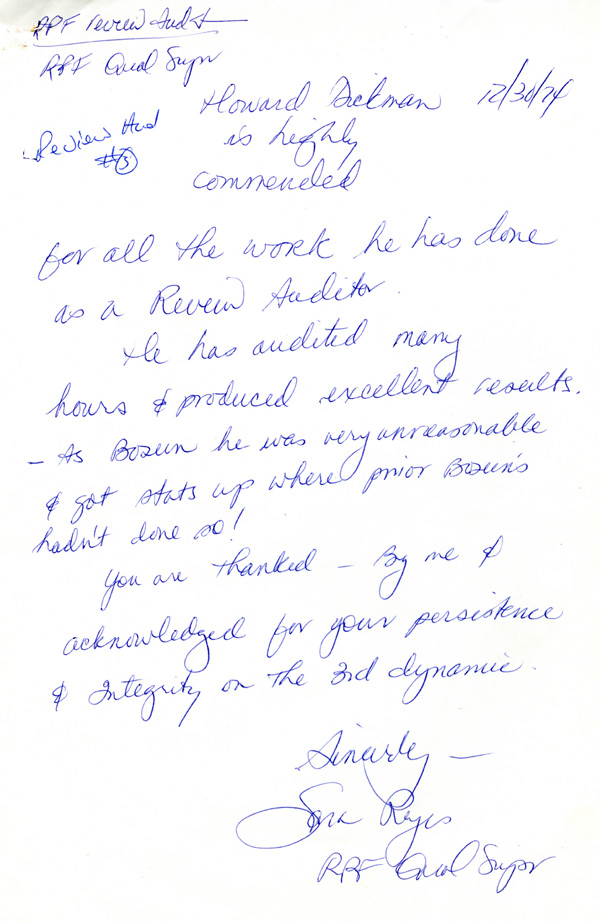 RPF review Audt
RPF Qual Supr
Howard Dickman 12/30/74
Review Aud
#3
is highly
commended
for all the work he has done
as a Reveiw Auditor.
He has audited many
hours & produced excellent results.
- As Bosun he was very unreasonable
& got stats up where prior Bosun's
hadn't done so!
You are thanked - By me &
acknowledged for your persistence
& Integrity on the 3rd dynamic.
Sincerely -
Reyes
RPF Qual Supr